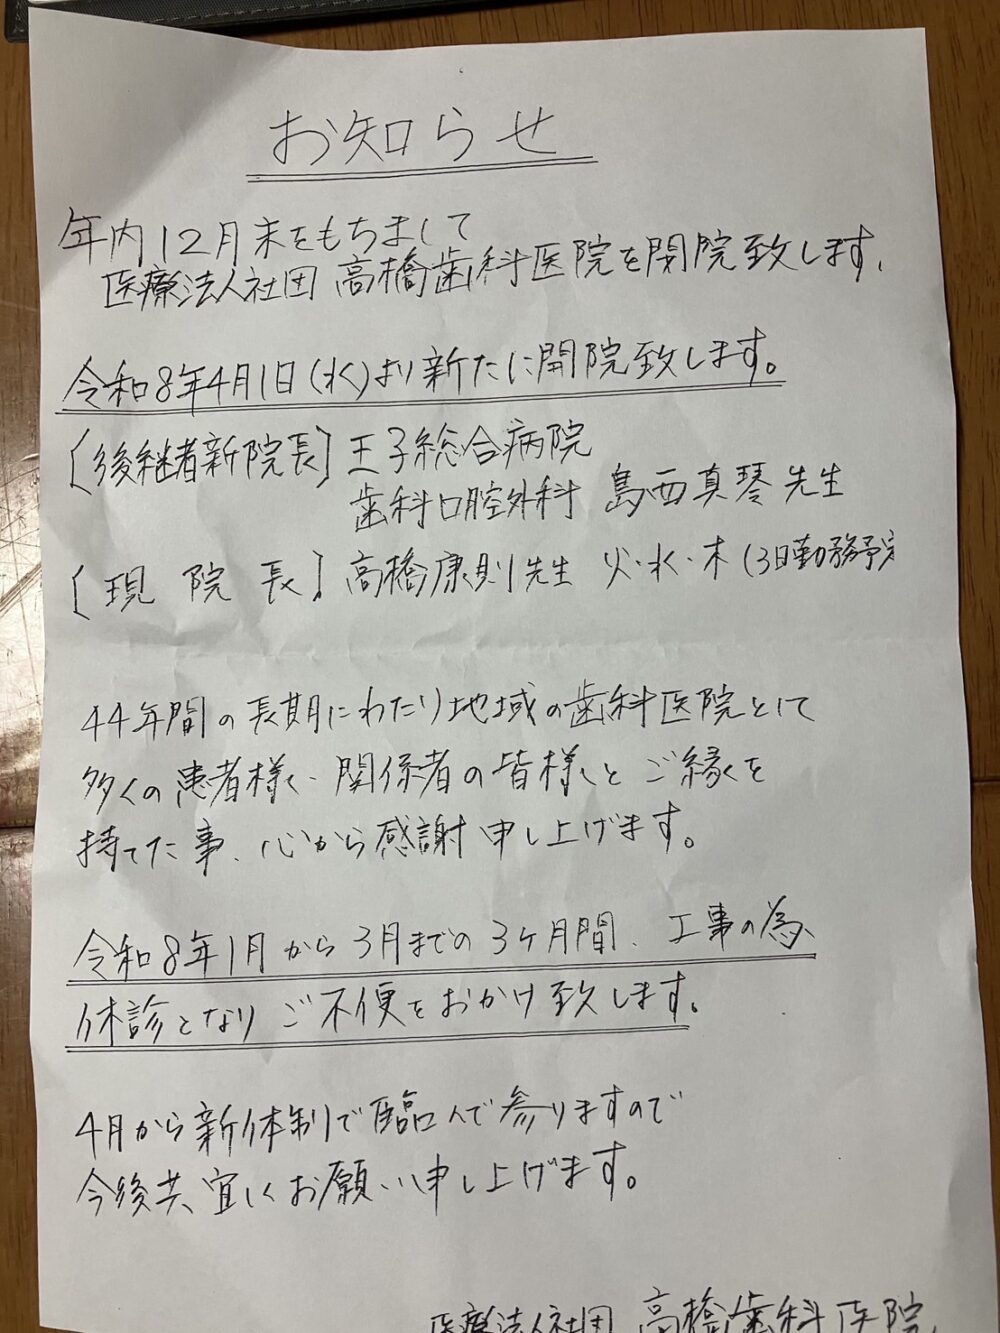 お知らせ
年内12月末をもちまして
医療法人社団 高橋歯科医院を閉院致します、
令和8年4月1日(水)より新たに開院致します。
[後継者新院長] 王子総合病院
歯科口腔外科 島西真琴先生
[現 院 長] 高橋康則先生 火・水・木(3日勤務予定
44年間の長期にわたり地域の歯科医院として
多くの患者様、関係者の皆様とご縁を
持てた事、心から感謝申し上げます。
令和8年1月から3月までの3ヶ月間、工事の為、
休診となりご不便をおかけ致します。
4月から新体制で臨んで参りますので
今後共、宜しくお願い申し上げます。
医療法人社団 高橋歯科医院